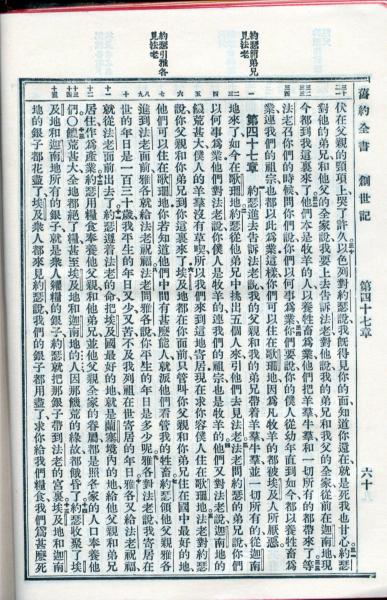 舊約全書 創世記 第四十七章 六十
約瑟領弟兄
見法老
約瑟引雅各
見法老
伏在父親的頸項上哭了許久以色列對約瑟說我既得見你的面知道你還在就是死我也甘心約瑟
對他的弟兄和他父的全家說我要上去告訴法老對他說我的弟兄和我父的全家從前在迦南地現
今都到我這裏來了他們本是牧羊的人以養牲畜爲業他們把羊羣牛羣和一切所有的都帶來了等
法老召你們的時候問你們說你們以何事爲業你們要說你的僕人從幼年直到如今都以養牲畜爲
業連我們的祖宗也都以此爲業這樣你們可以住在歌珊地因爲凡牧羊的都被埃及人所厭惡
第四十七章 約瑟進去告訴法老說我的父親和我的弟兄帶着羊羣牛羣並一切所有的從迦南
地來了如今在歌珊地約瑟從他弟兄中挑出五個人來引他們去見法老法老問約瑟的弟兄說你們
以何事爲業他們對法老說你僕人是牧羊的連我們的祖宗也是牧羊的他們又對法老說迦南地的
饑荒甚大僕人的羊羣沒有草喫所以我們來到這地寄居現在求你容僕人住在歌珊地法老對約瑟
說你父親和你弟兄到你這裏來了埃及地都在你面前只管叫你父親和你弟兄住在國中最好的地
他們可以住在歌珊地你若知道他們中間有甚麼能人就派他們看管我的牲畜約瑟領他父親雅各
進到法老面前雅各就給法老祝福法老問雅各說你平生的年日是多少呢雅各對法老說我寄居在
世的年日是一百三十歲我平生的年日又少又苦不及我列祖在世寄居的年日雅各又給法老祝福
就從法老面前出去了約瑟遵着法老的命把埃及國最好的地就是蘭塞境內的地給他父親和弟兄
居住作爲產業約瑟用糧食奉養他父親和他弟兄並他父親全家的眷屬都是照各家的人口奉養他
們○饑荒甚大全地都絕了糧甚至埃及地和迦南地的人因那饑荒的緣故都餓昏了約瑟收聚了埃
及地和迦南地所有的銀子就是衆人糴糧的銀子約瑟就把那銀子帶到法老的宮裏埃及地和迦南
地的銀子都花盡了埃及衆人都來見約瑟說我們的銀子都用盡了求你給我們糧食我們爲甚麼死